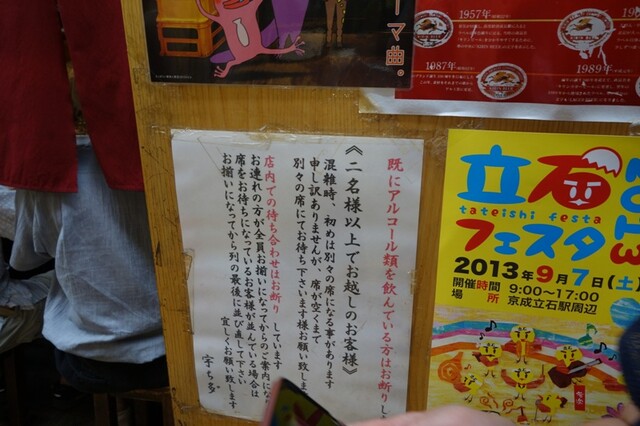 ーマ曲。
1957年
1987年
1989年
既にアルコール類を飲んでいる方はお断りし
《二名様以上でお越しのお客様》
混雑時、初めは別々の席になる事があります
申し訳ありませんが、席が空くまで
別々の席にてお待ち下さいます様お願い致しま
店内での待ち合わせはお断りしています
お連れの方が全員お揃いになってからのご案内にな
席をお待ちになっているお客様が並んでいる場合は
お揃いになってから列の最後に並び直して下さい
宜しくお願い致します
宇ち多
立石
tateishi festa
フェスタ
2013
2013年9月7日(土)
開催時間 9:00~17:00
場所 京成立石駅周辺